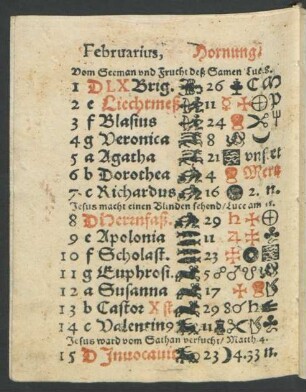 Februarius, Hornung/
Vom Seeman vnd Frucht deß Samen Luc. 8.
1 D LX Brig. 26
2 e Liechtmeß 11 ☿
3 f Blasius 24
4 g Veronica 8
5 a Agatha 21 vns. et
6 b Dorothea 4 Mertz
7 c Richardus 16 2. n.
Jesus macht einen Blinden sehend/ Luce am 18.
8 D Herrenfaß. 29 ♄
9 e Apolonia 11 ♃
10 f Scholast. 23
11 g Euphrosi. 5 ☍
12 a Susanna 17
13 b Castor X st 29
14 c Valentinꝰ 11 n.
Jesus ward vom Sathan versucht/ Matth 4.
15 D Inuocauit 23 ☽ 4.33 n.